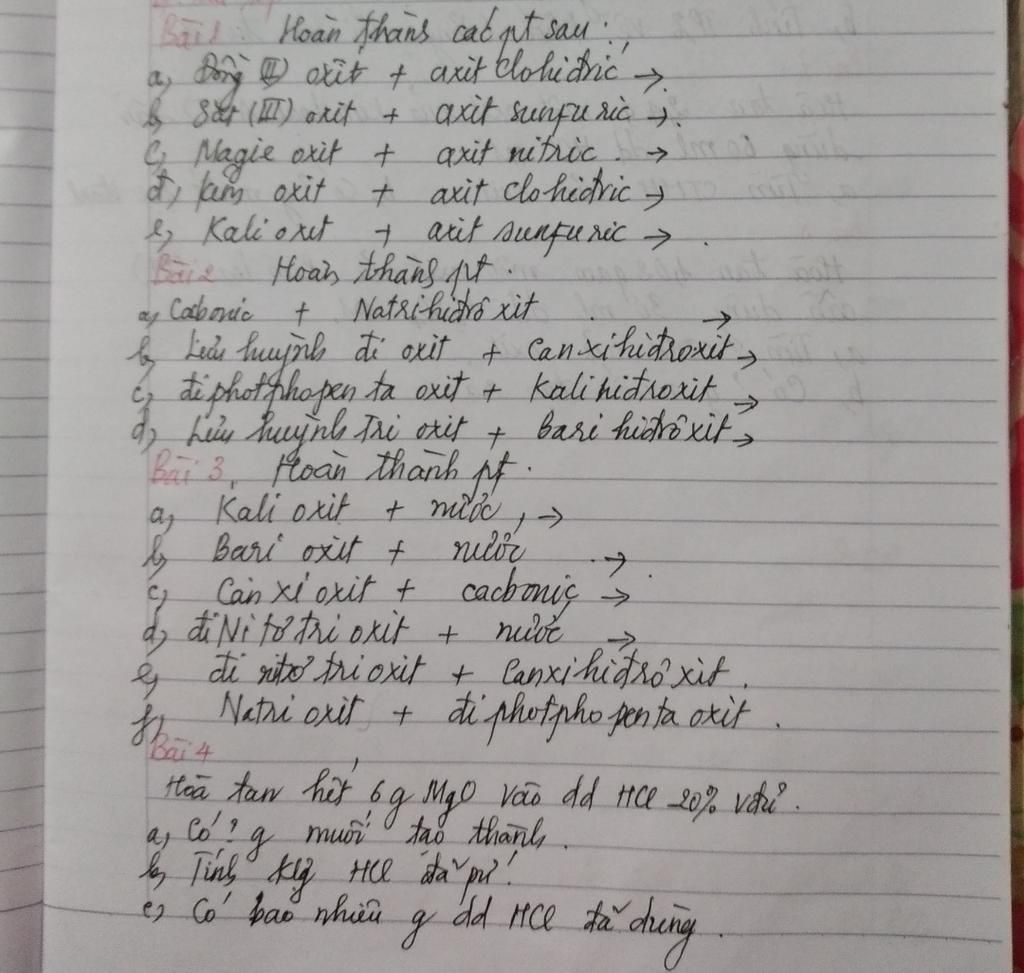 Bài 1: Hoàn thàns các pt sau:
a, Đồng (II) oxit + axit clohiđric →
b, Sắt (III) oxit + axit sunfuric →.
c, Magie oxit + axit nitric. →
d, kẽm oxit + axit clohiđric →
e, Kali oxit + axit sunfuric → .
Bài 2 Hoàn thàng pt.
a, Cacbonic + Natrihiđrôxit →
b, Lưu huỳnh đi oxit + Canxihiđroxit →
c, điphotphopen ta oxit + Kalihiđroxit →
d, Lưu huỳnh tri oxit + bari hiđrôxit →
Bài 3, Hoàn thành pt.
a, Kali oxit + nước, →
b, Bari oxit + nước →
c, Can xi oxit + cacbonic →
d, đi Ni tơ tri oxit + nước →
e, đi nitơ tri oxit + Canxihiđrôxit.
f, Natri oxit + điphotpho penta oxit.
Bài 4
Hoà tan hết 6g MgO vào dd HCl 20% vđủ.
a, Có ? g muối tạo thành.
b, Tính klg HCl đã pứ!
c, Có bao nhiêu g dd HCl đã dùng.